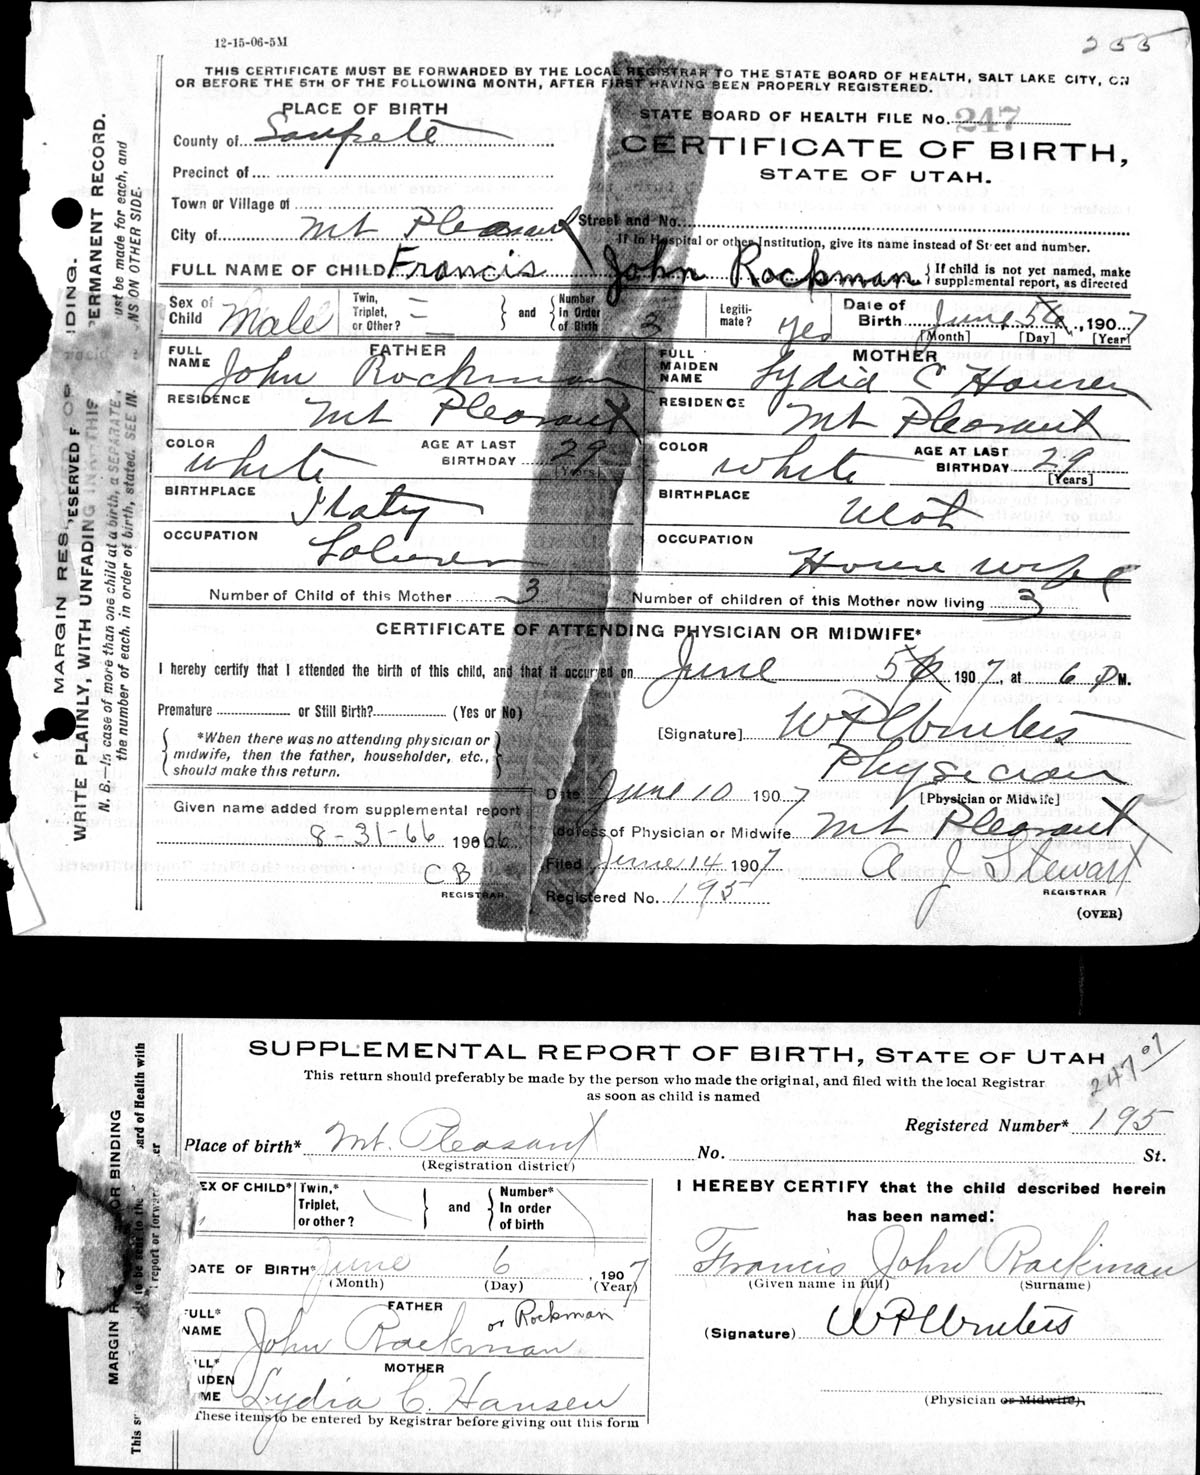 12-15-06-5M
255
THIS CERTIFICATE MUST BE FORWARDED BY THE LOCAL REGISTRAR TO THE STATE BOARD OF HEALTH, SALT LAKE CITY, ON
OR BEFORE THE 5TH OF THE FOLLOWING MONTH, AFTER FIRST HAVING BEEN PROPERLY REGISTERED.
PLACE OF BIRTH
County of Sanpete
Precinct of
Town or Village of
City of Mt Pleasant
STATE BOARD OF HEALTH FILE No. 247
CERTIFICATE OF BIRTH,
STATE OF UTAH.
Street and No.
If in Hospital or other Institution, give its name instead of Street and number.
FULL NAME OF CHILD Francis John Rockman } If child is not yet named, make supplemental report, as directed
Sex of Child Male
Twin, Triplet, or Other? } and { Number in Order of Birth 3
Legiti-mate? yes
Date of Birth June 5 6, 1907
[Month] [Day] [Year]
FATHER
FULL NAME John Rockman
RESIDENCE Mt Pleasant
COLOR White AGE AT LAST BIRTHDAY 29 [Years]
BIRTHPLACE Italy
OCCUPATION Laborer
MOTHER
FULL MAIDEN NAME Lydia C Hansen
RESIDENCE Mt Pleasant
COLOR White AGE AT LAST BIRTHDAY 29 [Years]
BIRTHPLACE Utah
OCCUPATION House wife
Number of Child of this Mother 3 Number of children of this Mother now living 3
CERTIFICATE OF ATTENDING PHYSICIAN OR MIDWIFE*
I hereby certify that I attended the birth of this child, and that it occurred on June 5 6 1907, at 6 P M.
Premature or Still Birth? (Yes or No)
{ *When there was no attending physician or midwife, then the father, householder, etc., should make this return. }
[Signature]
Physician
[Physician or Midwife]
Date June 10 1907
Given name added from supplemental report
8-31-66 19066
CB
REGISTRAR
Address of Physician or Midwife Mt Pleasant
Filed June 14 1907 A J Stewart
REGISTRAR
Registered No. 195
(OVER)
MARGIN RESERVED FOR BINDING.
WRITE PLAINLY, WITH UNFADING INK—THIS PERMANENT RECORD.
N. B.—In case of more than one child at a birth, a SEPARATE must be made for each, and
the number of each, in order of birth, stated. SEE IN NS ON OTHER SIDE.
SUPPLEMENTAL REPORT OF BIRTH, STATE OF UTAH
247 07
This return should preferably be made by the person who made the original, and filed with the local Registrar
as soon as child is named
Registered Number* 195
Place of birth* Mt. Pleasant No. St.
(Registration district)
EX OF CHILD* Twin,* Triplet, or other? } and { Number* In order of birth
DATE OF BIRTH* June 6, 1907
(Month) (Day) (Year)
FATHER
FULL* NAME John Rockman or Rockman
MOTHER
LL* AIDEN ME Lydia C. Hansen
These items to be entered by Registrar before giving out this form
I HEREBY CERTIFY that the child described herein
has been named:
Francis John Rockman
(Given name in full) (Surname)
(Signature)
(Physician or Midwife).
MARGIN R OR BINDING